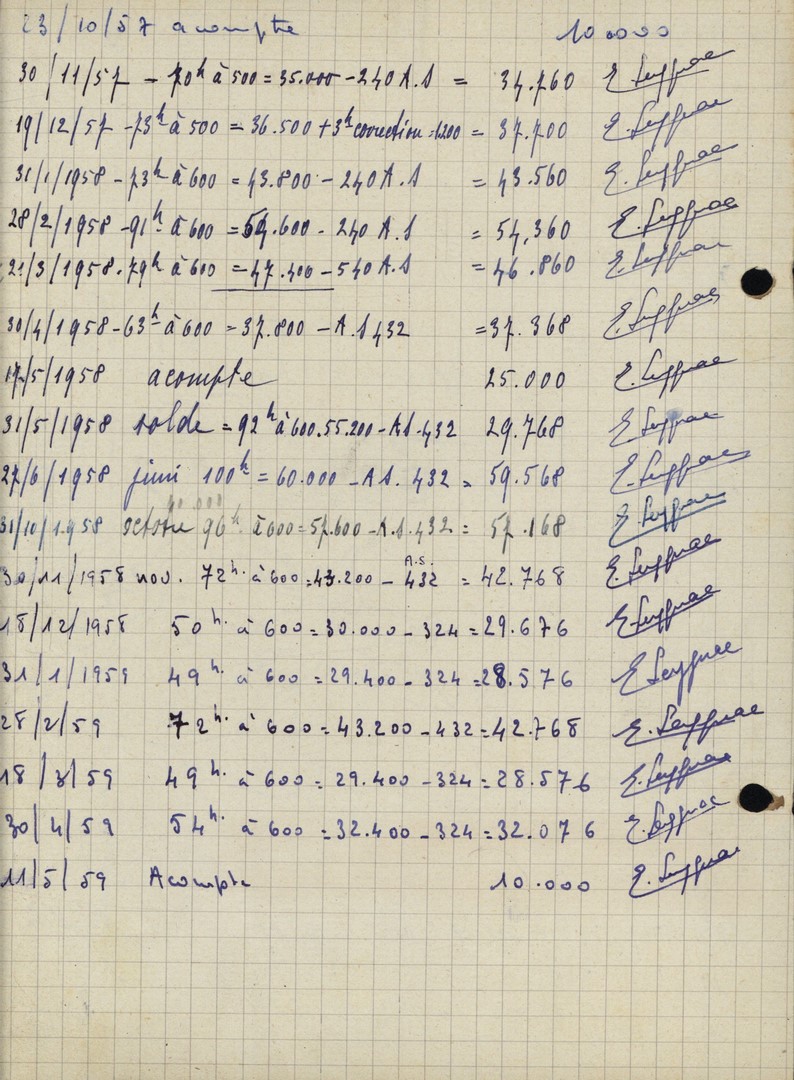 23/10/57 acompte 10.000
30/11/57 - 70h à 500 = 35.000 - 240 A.S = 34.760
19/12/57 - 73h à 500 = 36.500 + 3h correction = 1200 = 37.700
31/1/1958 - 73h à 600 = 43.800 - 240 A.S = 43.560
28/2/1958 - 91h à 600 = 54.600 - 240 A.S = 54,360
21/3/1958 - 79h à 600 = 47.400 - 540 A.S = 46.860
30/4/1958 - 63h à 600 = 37.800 - A.S 432 = 37.368
17/5/1958 acompte 25.000
31/5/1958 solde = 92h à 600. 55.200 - AS. 432 29.768
27/6/1958 juin 100h = 60.000 - A.S. 432 = 59.568
31/10/1958 octobre 96h à 600 = 57.600 - A.S. 432 = 57.168
30/11/1958 nov. 72h. à 600 = 43.200 - A.S. 432 = 42.768
18/12/1958 50h. à 600 = 30.000 - 324 = 29.676
31/1/1959 49h. à 600 = 29.400 - 324 = 28.576
28/2/59 72h. à 600 = 43.200 - 432 = 42.768
18/3/59 49h. à 600 = 29.400 - 324 = 28.576
30/4/59 54h. à 600 = 32.400 - 324 = 32.076
11/5/59 Acompte 10.000